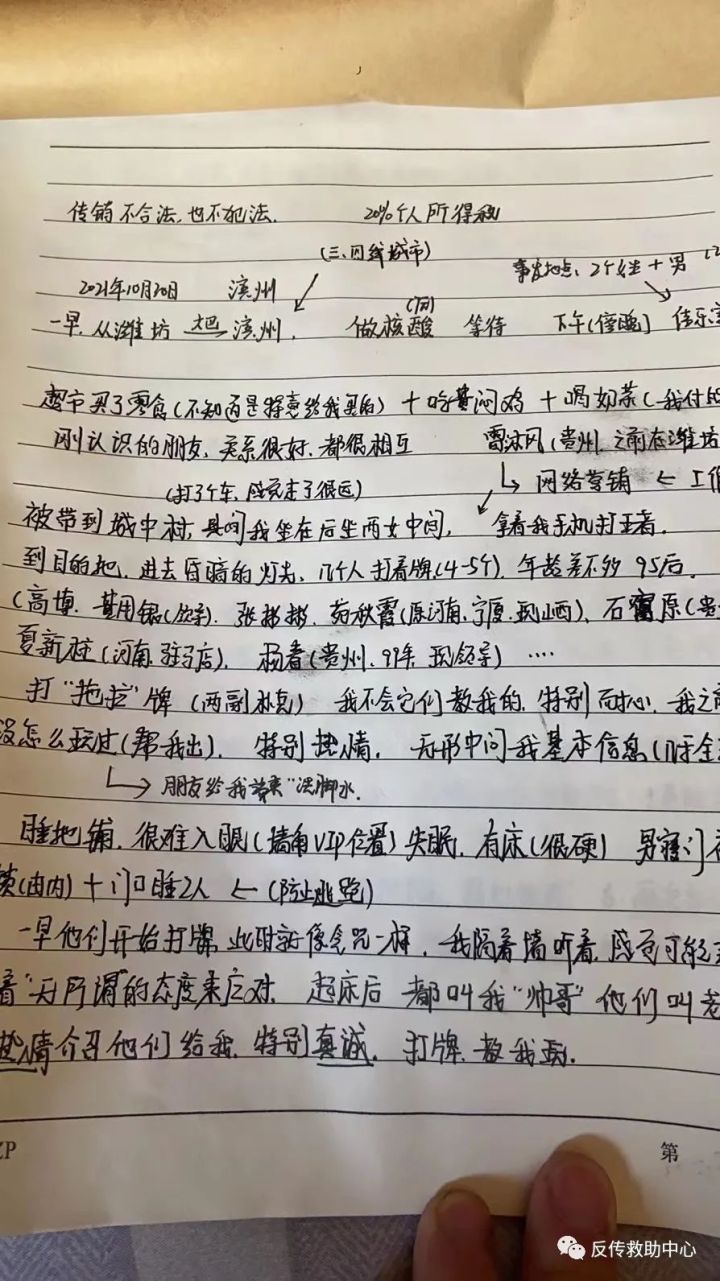 传销不合法,也不犯法. 20%个人所得税
(三、四线城市)
事发地点: 2个女生 + 男
2021年10月20日 滨州
一早. 从潍坊 大巴 滨州. 做核酸 等待 下午(傍晚) 佳乐
超市买了零食(不知道是特意给我买的) + 吃黄闷鸡 + 喝奶茶(我付的
刚认识的朋友, 关系很好, 都很相互 雷冰风(贵州, 之前在潍坊
(打了个车, 感觉走了很远) 网络营销 ←
被带到城中村, 期间我坐在后坐两女中间, 拿着我手机打王者.
到目的地, 进去昏暗的灯光, 几个人打着牌(4-5个). 年龄差不多95后.
(高博. 张彬彬. 苑秋霞(原河南, 宁夏, 到山西). 石富原(贵
夏新桂(河南, 驻马店). 杨春(贵州. 99年 到领导) ····
打“拖拉”牌 (两副扑克) 我不会它们教我的, 特别耐心, 我之前
没怎么玩过(帮我出). 特别热情. 无形中问我基本信息(几乎全
朋友给我端来“洗脚水.
睡地铺, 很难入眠(墙角VIP位置) 失眠, 有床(很硬) 男寝门
锁(由内) + 门口睡2人 ← (防止逃跑)
一早他们开始打牌, 此时就像念咒一样. 我隔着墙听着, 感觉可能
着“无所谓”的态度来应对. 起床后 都叫我“帅哥” 他们叫
热情介绍他们给我. 特别真诚. 打牌, 教我玩.
ZP
第
反传救助中心